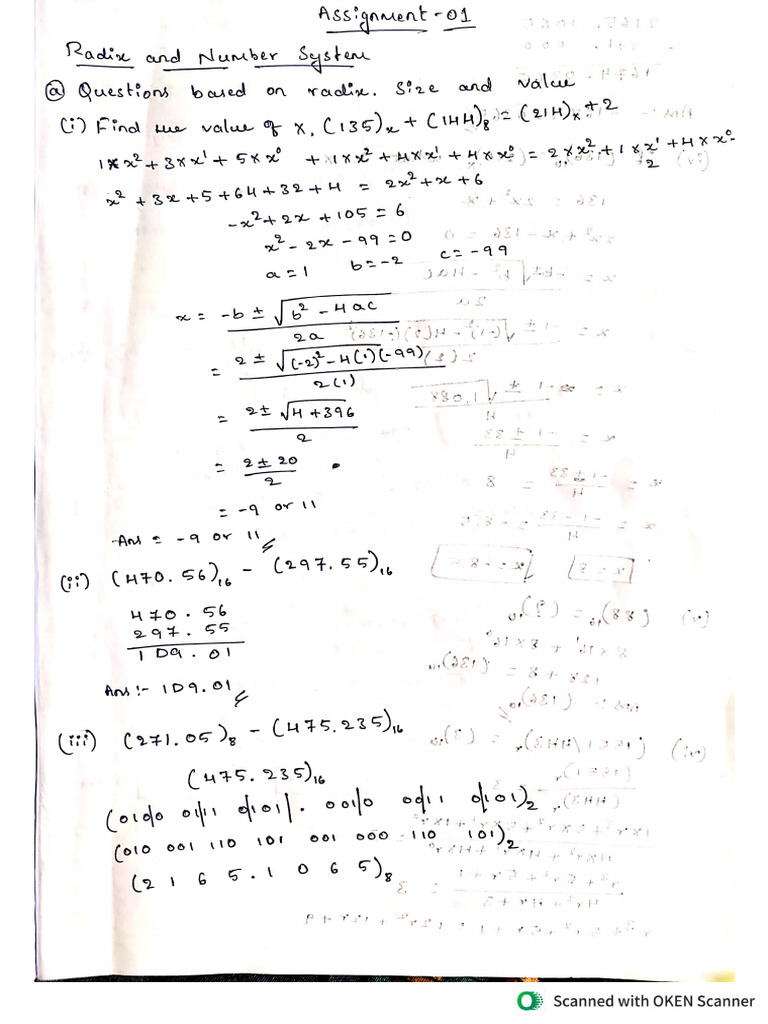 Assignment-01
Radix and Number System
(a) Questions based on radix. Size and value
(i) Find the value of x, (135)ₓ + (144)₈ = (214)ₓ + 2
1×x² + 3×x¹ + 5×x⁰ + 1×x² + 4×x¹ + 4×x⁰ = 2×x² + 1×x¹ + 4×x⁰
2
x² + 3x + 5 + 64 + 32 + 4 = 2x² + x + 6
-x² + 2x + 105 = 6
x² - 2x - 99 = 0
a = 1 b = -2 c = -99
x = -b ± √b² - 4ac / 2a
= 2 ± √(-2)² - 4(1)(-99) / 2(1)
= 2 ± √4 + 396 / 2
= 2 ± 20 / 2
= -9 or 11
Ans = -9 or 11
(ii) (470.56)₁₆ - (297.55)₁₆
470.56
297.55
1D9.01
Ans :- 1D9.01
(iii) (271.05)₈ - (475.235)₁₆
(475.235)₁₆
(0100 0111 0101 . 0010 0011 0101)₂
(010 001 110 101 001 000 110 101)₂
(2 1 6 5 . 1 0 6 5)₈
Scanned with OKEN Scanner